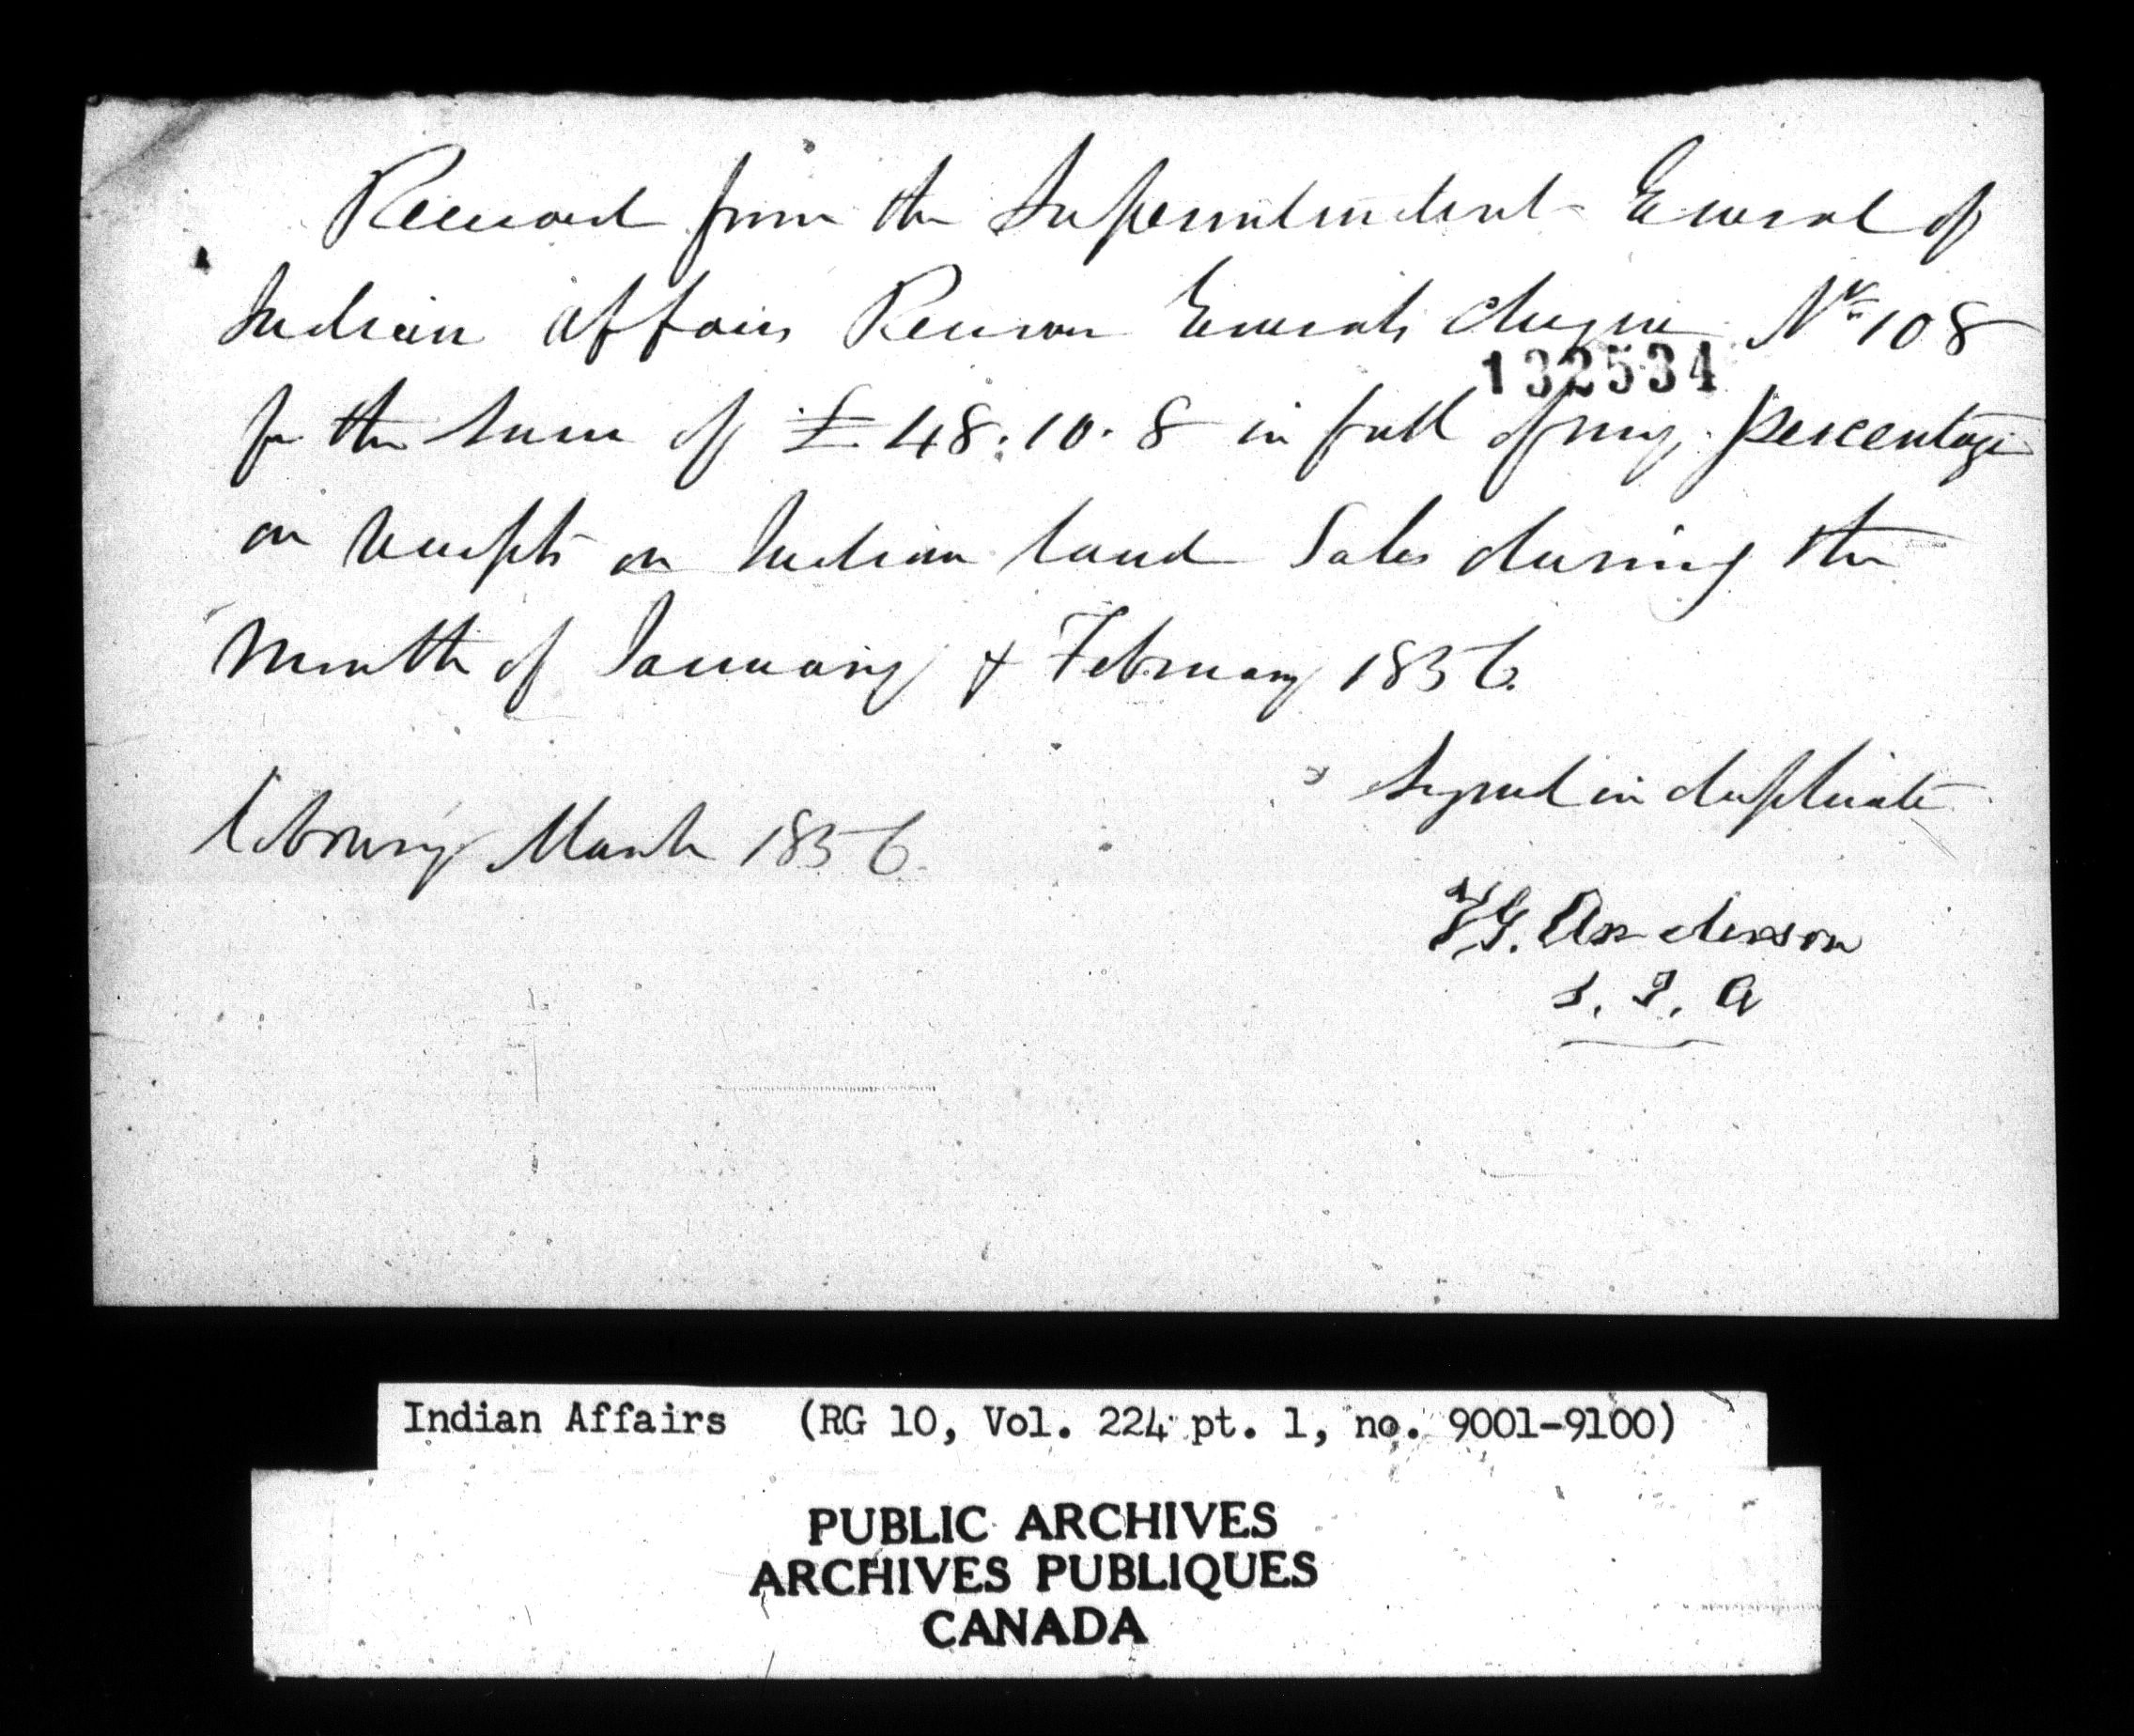 Received from the Superintendent General of
Indian Affairs Receiver Generals cheque No 108
132534
for the sum of £48.10.8 in full of my percentage
on receipts on Indian land Sales during the
Month of January & February 1856.
Cobourg March 1856.
Signed in duplicate
T.G. Anderson
S. I. A
Indian Affairs (RG 10, Vol. 224 pt. 1, no. 9001-9100)
PUBLIC ARCHIVES
ARCHIVES PUBLIQUES
CANADA